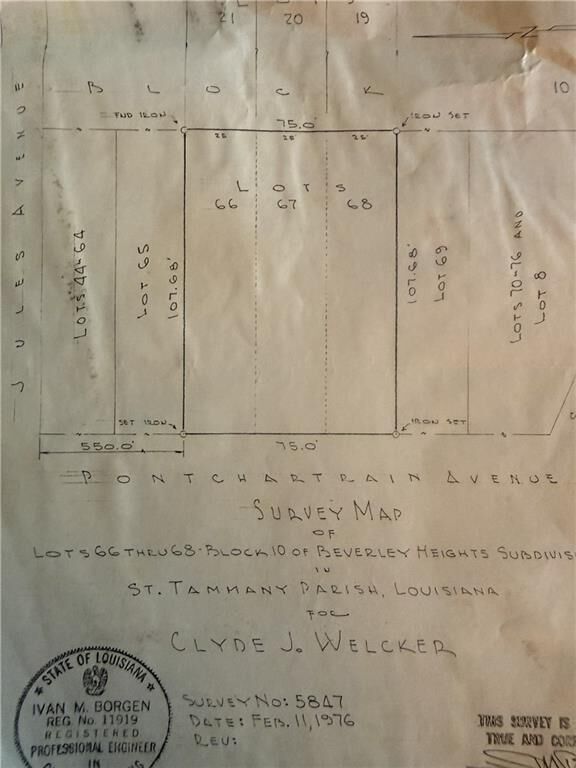 21 20 19
B L O C K 10
FND IRON 75.0' IRON SET
25' 25' 25'
L O T S
66 67 68
JULES AVENUE
LOTS 44-64
LOT 65
107.68'
107.68'
LOT 69
LOTS 70-76 AND
LOT 8
SET IRON IRON SET
550.0' 75.0'
PONTCHARTRAIN AVENUE
SURVEY MAP
OF
LOTS 66 THRU 68-BLOCK 10 OF BEVERLEY HEIGHTS SUBDIVIS
IN
ST. TAMMANY PARISH, LOUISIANA
FOR
CLYDE J. WELCKER
STATE OF LOUISIANA
IVAN M. BORGEN
REG. No. 11919
REGISTERED
PROFESSIONAL ENGINEER
IN
SURVEY NO: 5847
DATE: FEB. 11, 1976
REV:
THIS SURVEY IS
TRUE AND COR